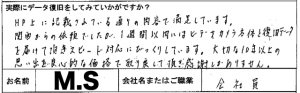 実際にデータ復旧をしてみていかがですか?
HP上に記載されている通りの内容で満足しています。
関西からの依頼でしたが、1週間以内にはビデオカメラ本体とデータ
を届けて頂きスピード対応にびっくりしています。大切な10年以上の
思い出を良心的な価格で取り戻して頂き感謝しかありません。
お名前 M.S 会社名またはご職業 会社員